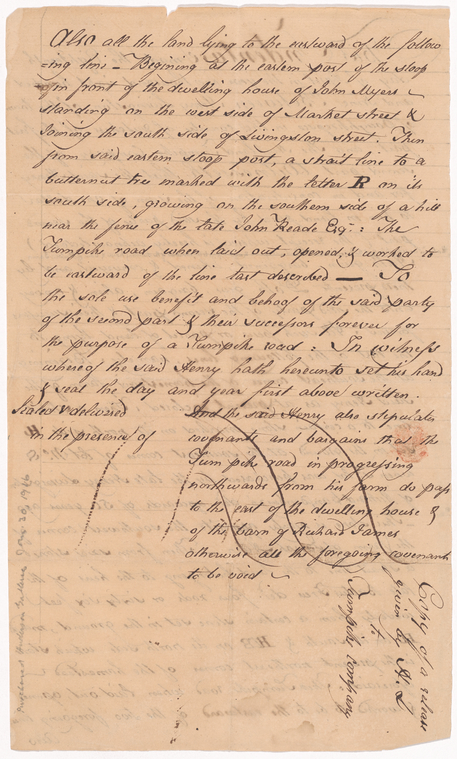 Also all the land lying to the eastward of the follow
=ing line – Begining at the eastern post of the stoop
in front of the dwelling house of John Myers
standing on the west side of Market street &
joining the south side of Livingston street. Then
from said eastern stoop post, a strait line to a
butternut tree marked with the letter R on its
south side, growing on the southern side of a hill
near the fence of the late John Reade Esqr: The
Turnpike road when laid out, opened, & worked to
be eastward of the line last described — To
the sole use benefit and behoof of the said party
of the second part & their successors forever for
the purpose of a Turnpike road: In witness
whereof the said Henry hath hereunto set his hand
& seal the day and year first above written.
Sealed & delivered
in the presence of
And the said Henry also stipulates
covenants and bargains that the
Turnpike road in progressing
northwards from his farm do pass
to the east of the dwelling house &
of the barn of Richard James
otherwise all the foregoing covenants
to be void
Copy of a release
given by H. L
to
Turnpike company